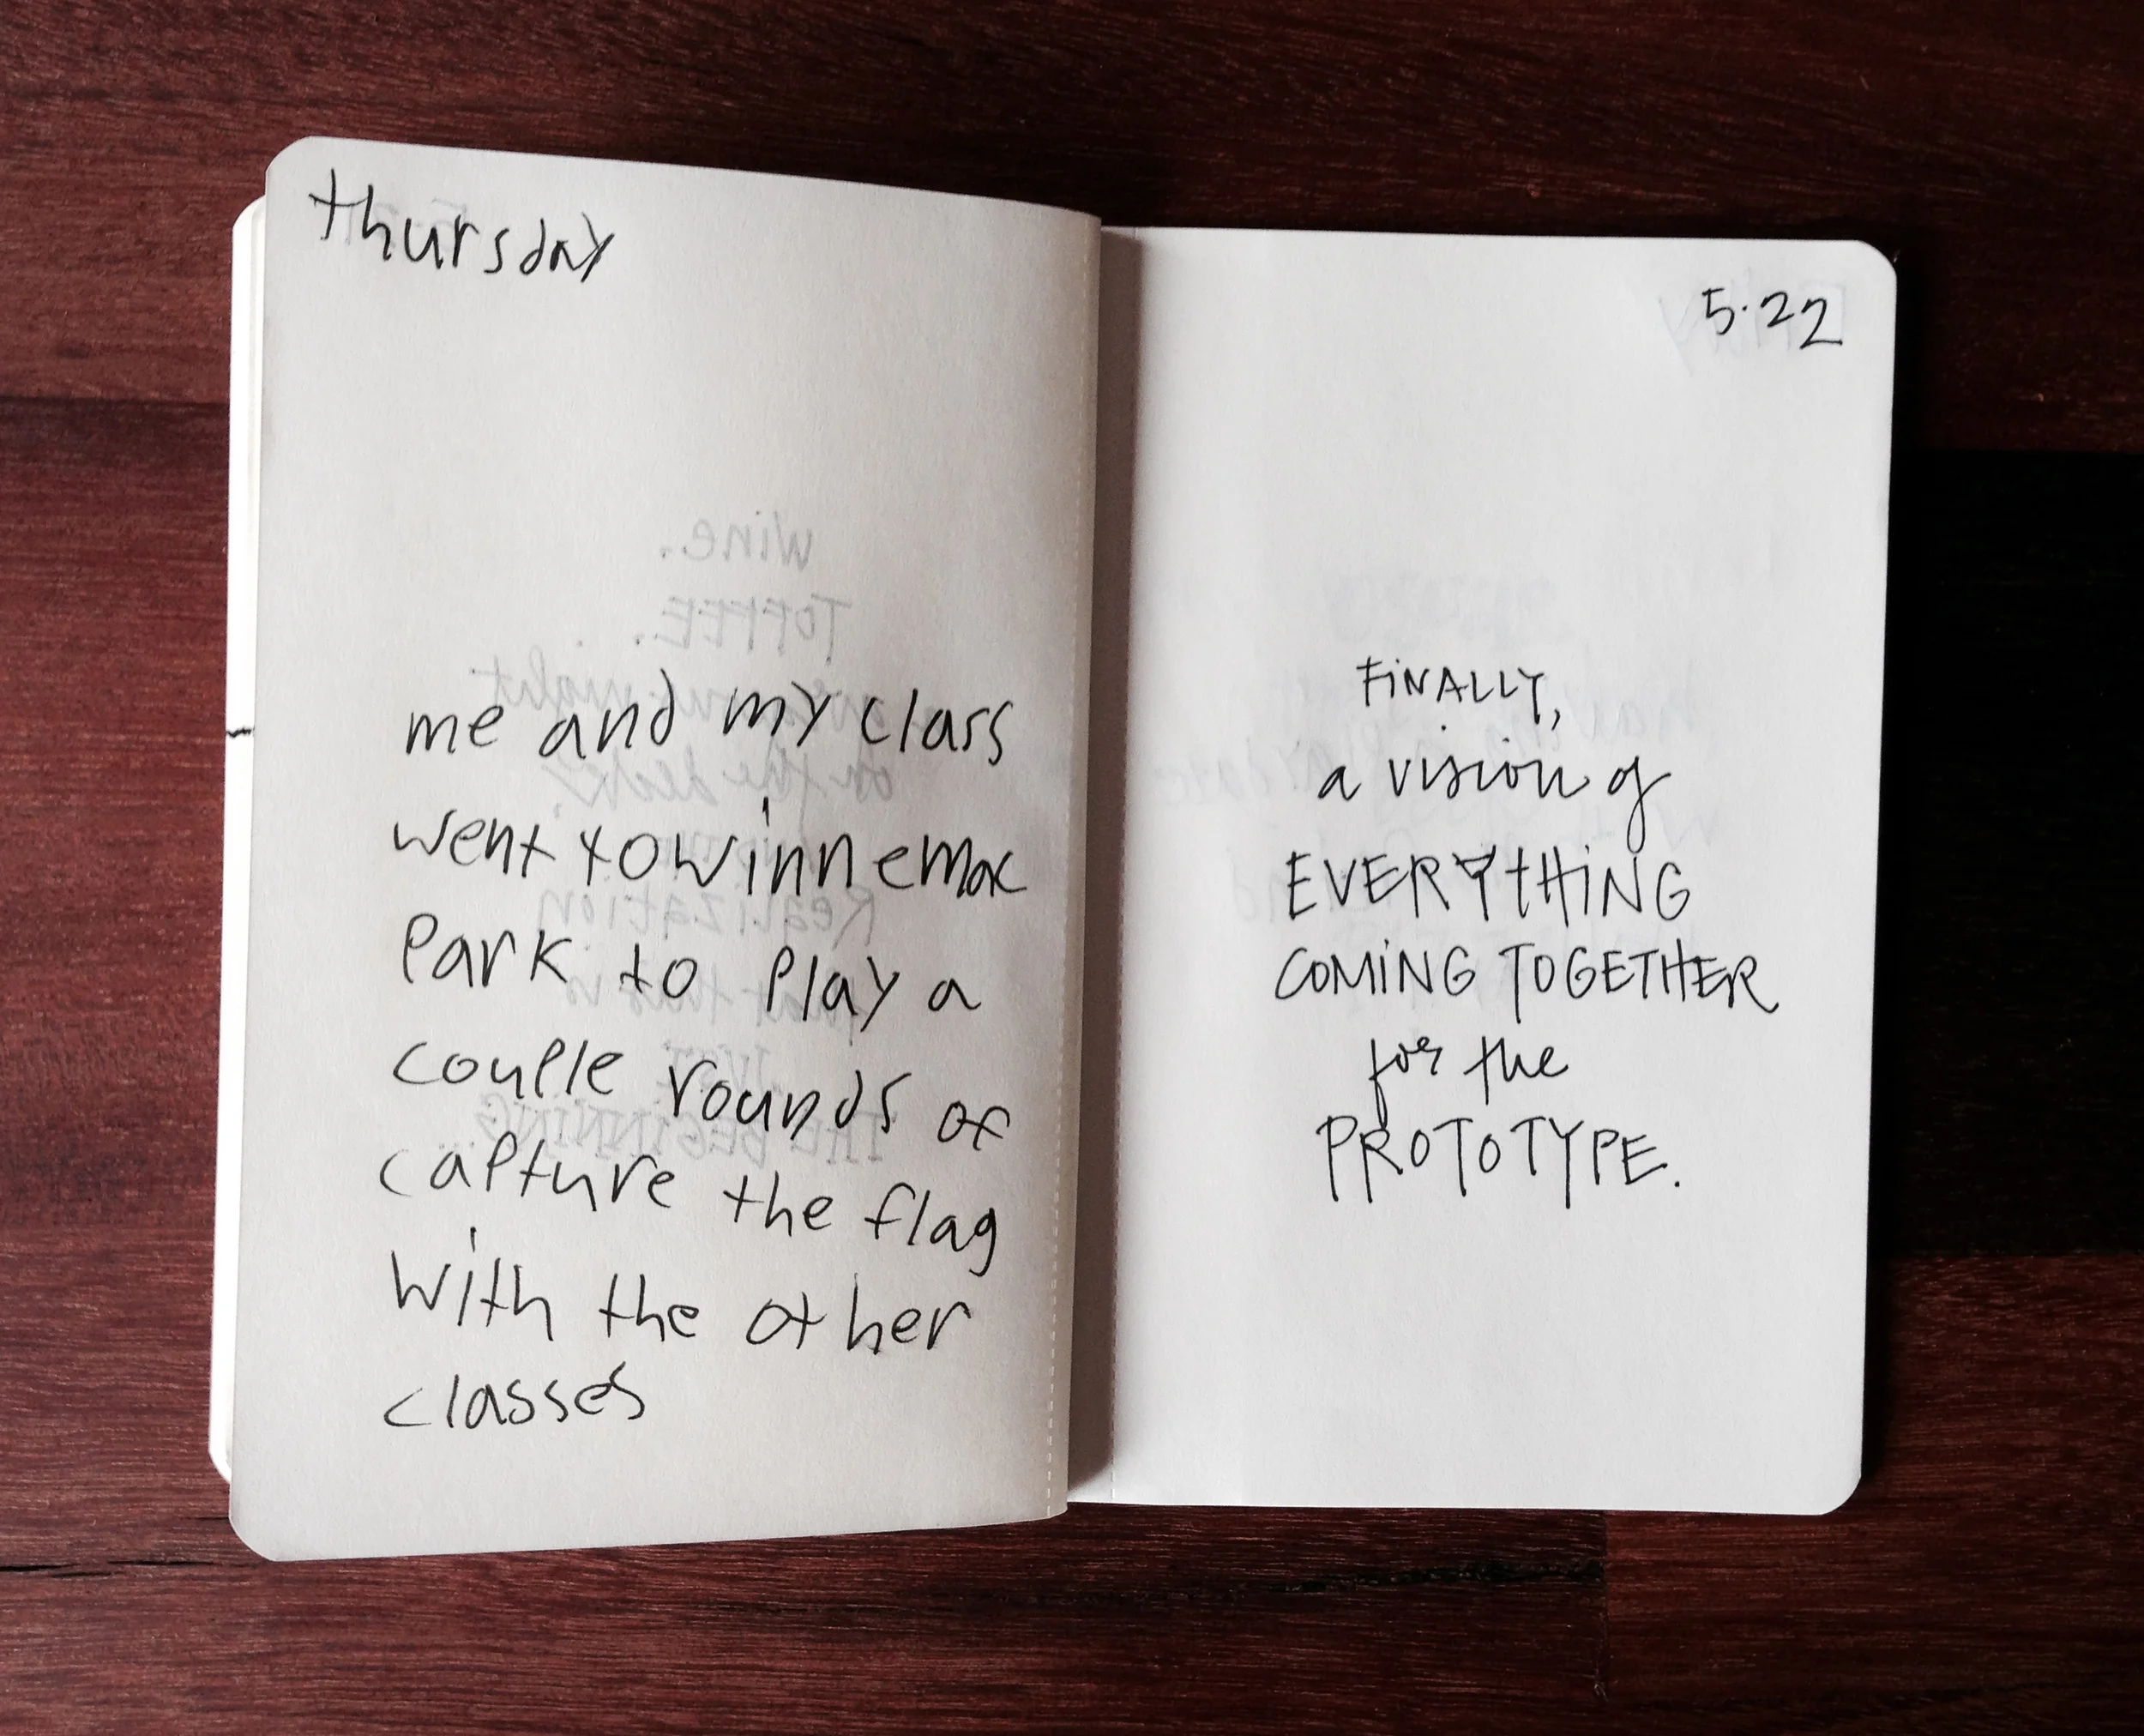 thursday
me and my class
went to winnemac
Park to Play a
couple rounds of
capture the flag
with the other
classes
5.22
FiNALLY,
a vision of
EVERYtHiNG
COMiNG TOGETHER
for the
PROTOTYPE.